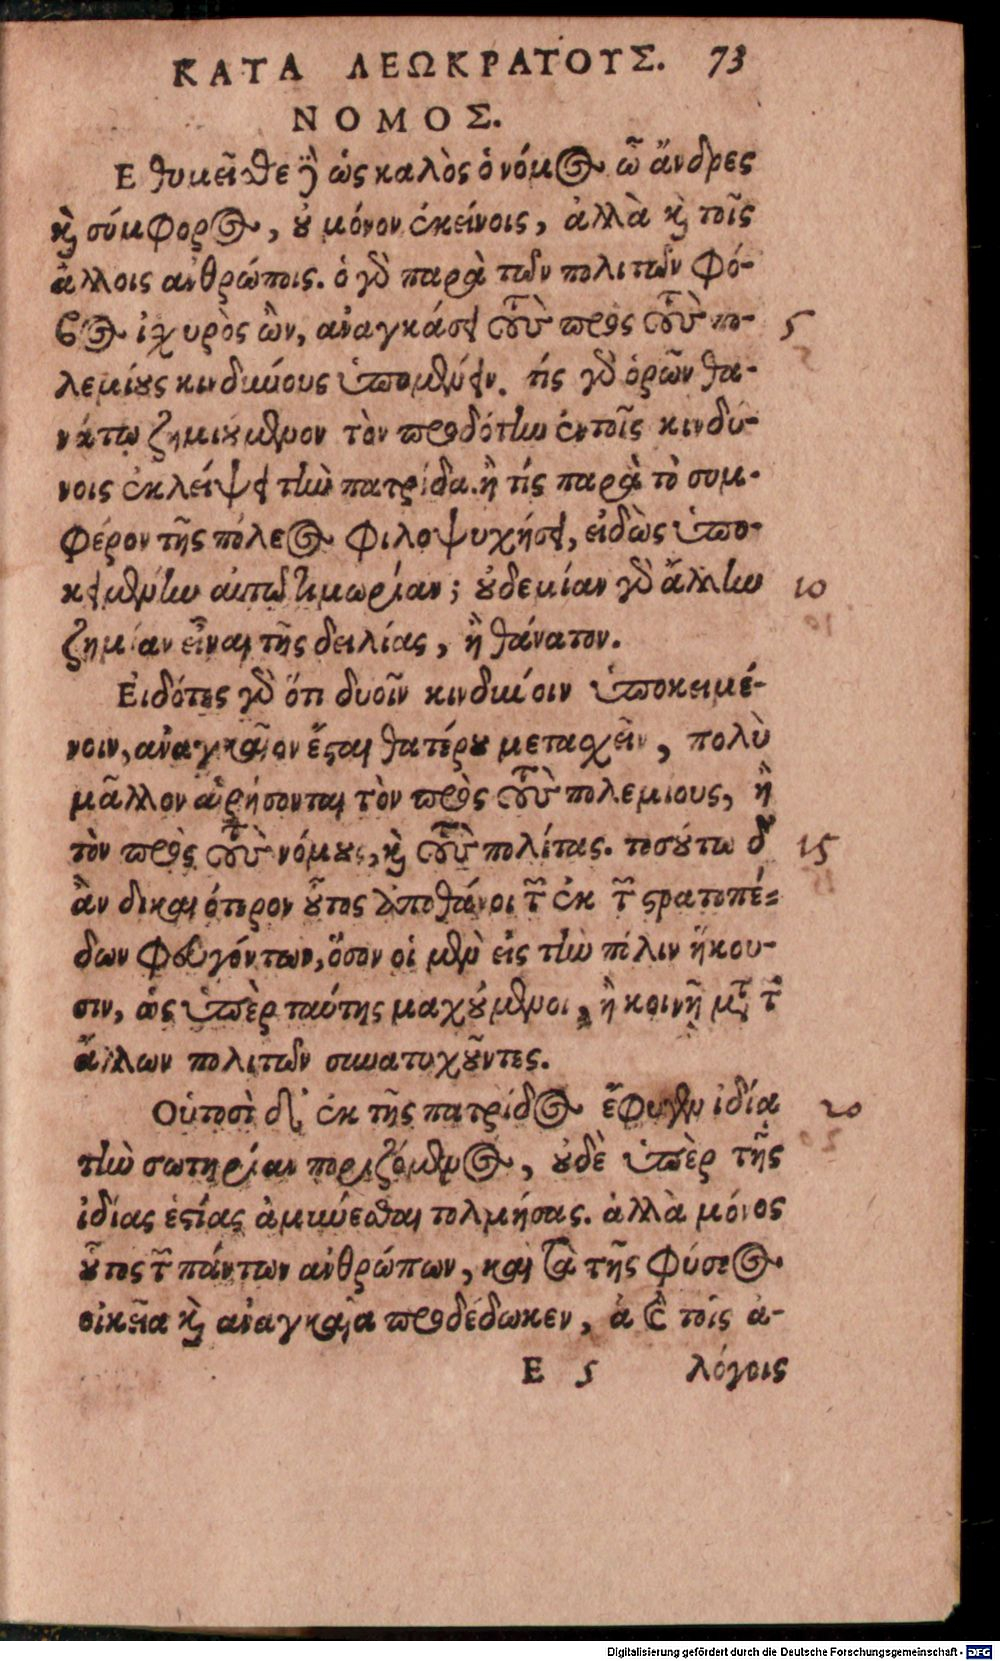 ΚΑΤΑ ΛΕΩΚΡΑΤΟΥΣ. 73
ΝΟΜΟΣ.
Ε θυμεῖσθε γὰρ ὡς καλὸς ὁ νόμος ὦ ἄνδρες
καὶ σύμφορος, οὐ μόνον ἐκείνοις, ἀλλὰ καὶ τοῖς
ἄλλοις ἀνθρώποις. ὁ γὰρ παρὰ τῶν πολιτῶν φό-
βος ἰσχυρὸς ὢν, ἀναγκάσει τοὺς πρὸς τοὺς πο- 5
λεμίους κινδύνους ὑπομένειν. τίς γὰρ ὁρῶν θα-
νάτῳ ζημιούμενον τὸν προδότην ἐν τοῖς κινδύ-
νοις ἐκλείψει τὴν πατρίδα. ἢ τίς παρὰ τὸ συμ-
φέρον τῆς πόλεως φιλοψυχήσει, εἰδὼς ὑπο-
κειμένην αὐτῷ τιμωρίαν; οὐδεμίαν γὰρ ἄλλην 10
ζημίαν εἶναι τῆς δειλίας, ἢ θάνατον.
Εἰδότες γὰρ ὅτι δυοῖν κινδύνοιν ὑποκειμέ-
νοιν, ἀναγκαῖον ἔσται θατέρου μετασχεῖν, πολὺ
μᾶλλον αἱρήσονται τὸν πρὸς τοὺς πολεμίους, ἢ
τὸν πρὸς τοὺς νόμους, καὶ τοὺς πολίτας. τοσούτῳ δ' 15
ἂν δικαιότερον οὗτος ἀποθάνοι τῶν ἐκ τῶν στρατοπέ-
δων φευγόντων, ὅσον οἱ μὲν εἰς τὴν πόλιν ἥκου-
σιν, ὡς ὑπὲρ ταύτης μαχούμενοι, ἢ κοινῇ μετὰ τῶν
ἄλλων πολιτῶν συνατυχοῦντες.
Οὑτοσὶ δὲ ἐκ τῆς πατρίδος ἔφυγεν ἰδίᾳ 20
τὴν σωτηρίαν ποριζόμενος, οὐδὲ ὑπὲρ τῆς
ἰδίας ἑστίας ἀμύνεσθαι τολμήσας. ἀλλὰ μόνος
οὗτος τῶν πάντων ἀνθρώπων, καὶ τὰ τῆς φύσεως
οἰκεῖα καὶ ἀναγκαῖα προδέδωκεν, ἃ καὶ τοῖς ἀ-
E 5 λόγοις
Digitalisierung gefördert durch die Deutsche Forschungsgemeinschaft - DFG